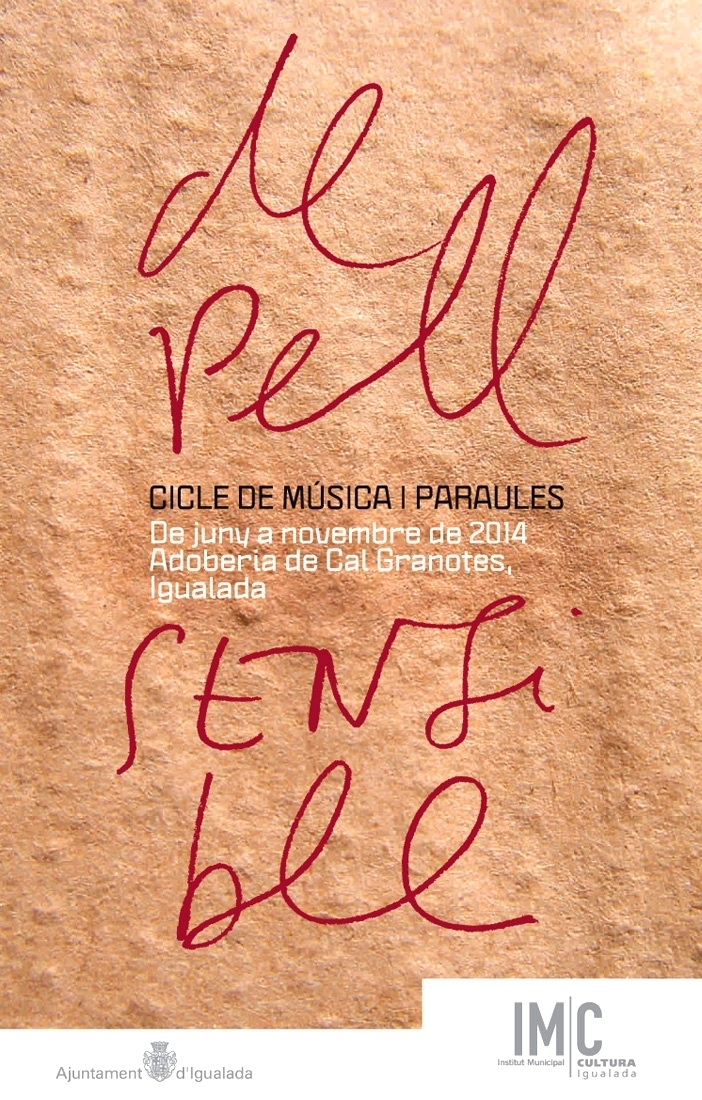 de
pell
CICLE DE MÚSICA I PARAULES
De juny a novembre de 2014
Adoberia de Cal Granotes,
Igualada
SENSi
ble
Ajuntament d'Igualada
IMC
Institut Municipal CULTURA
Igualada